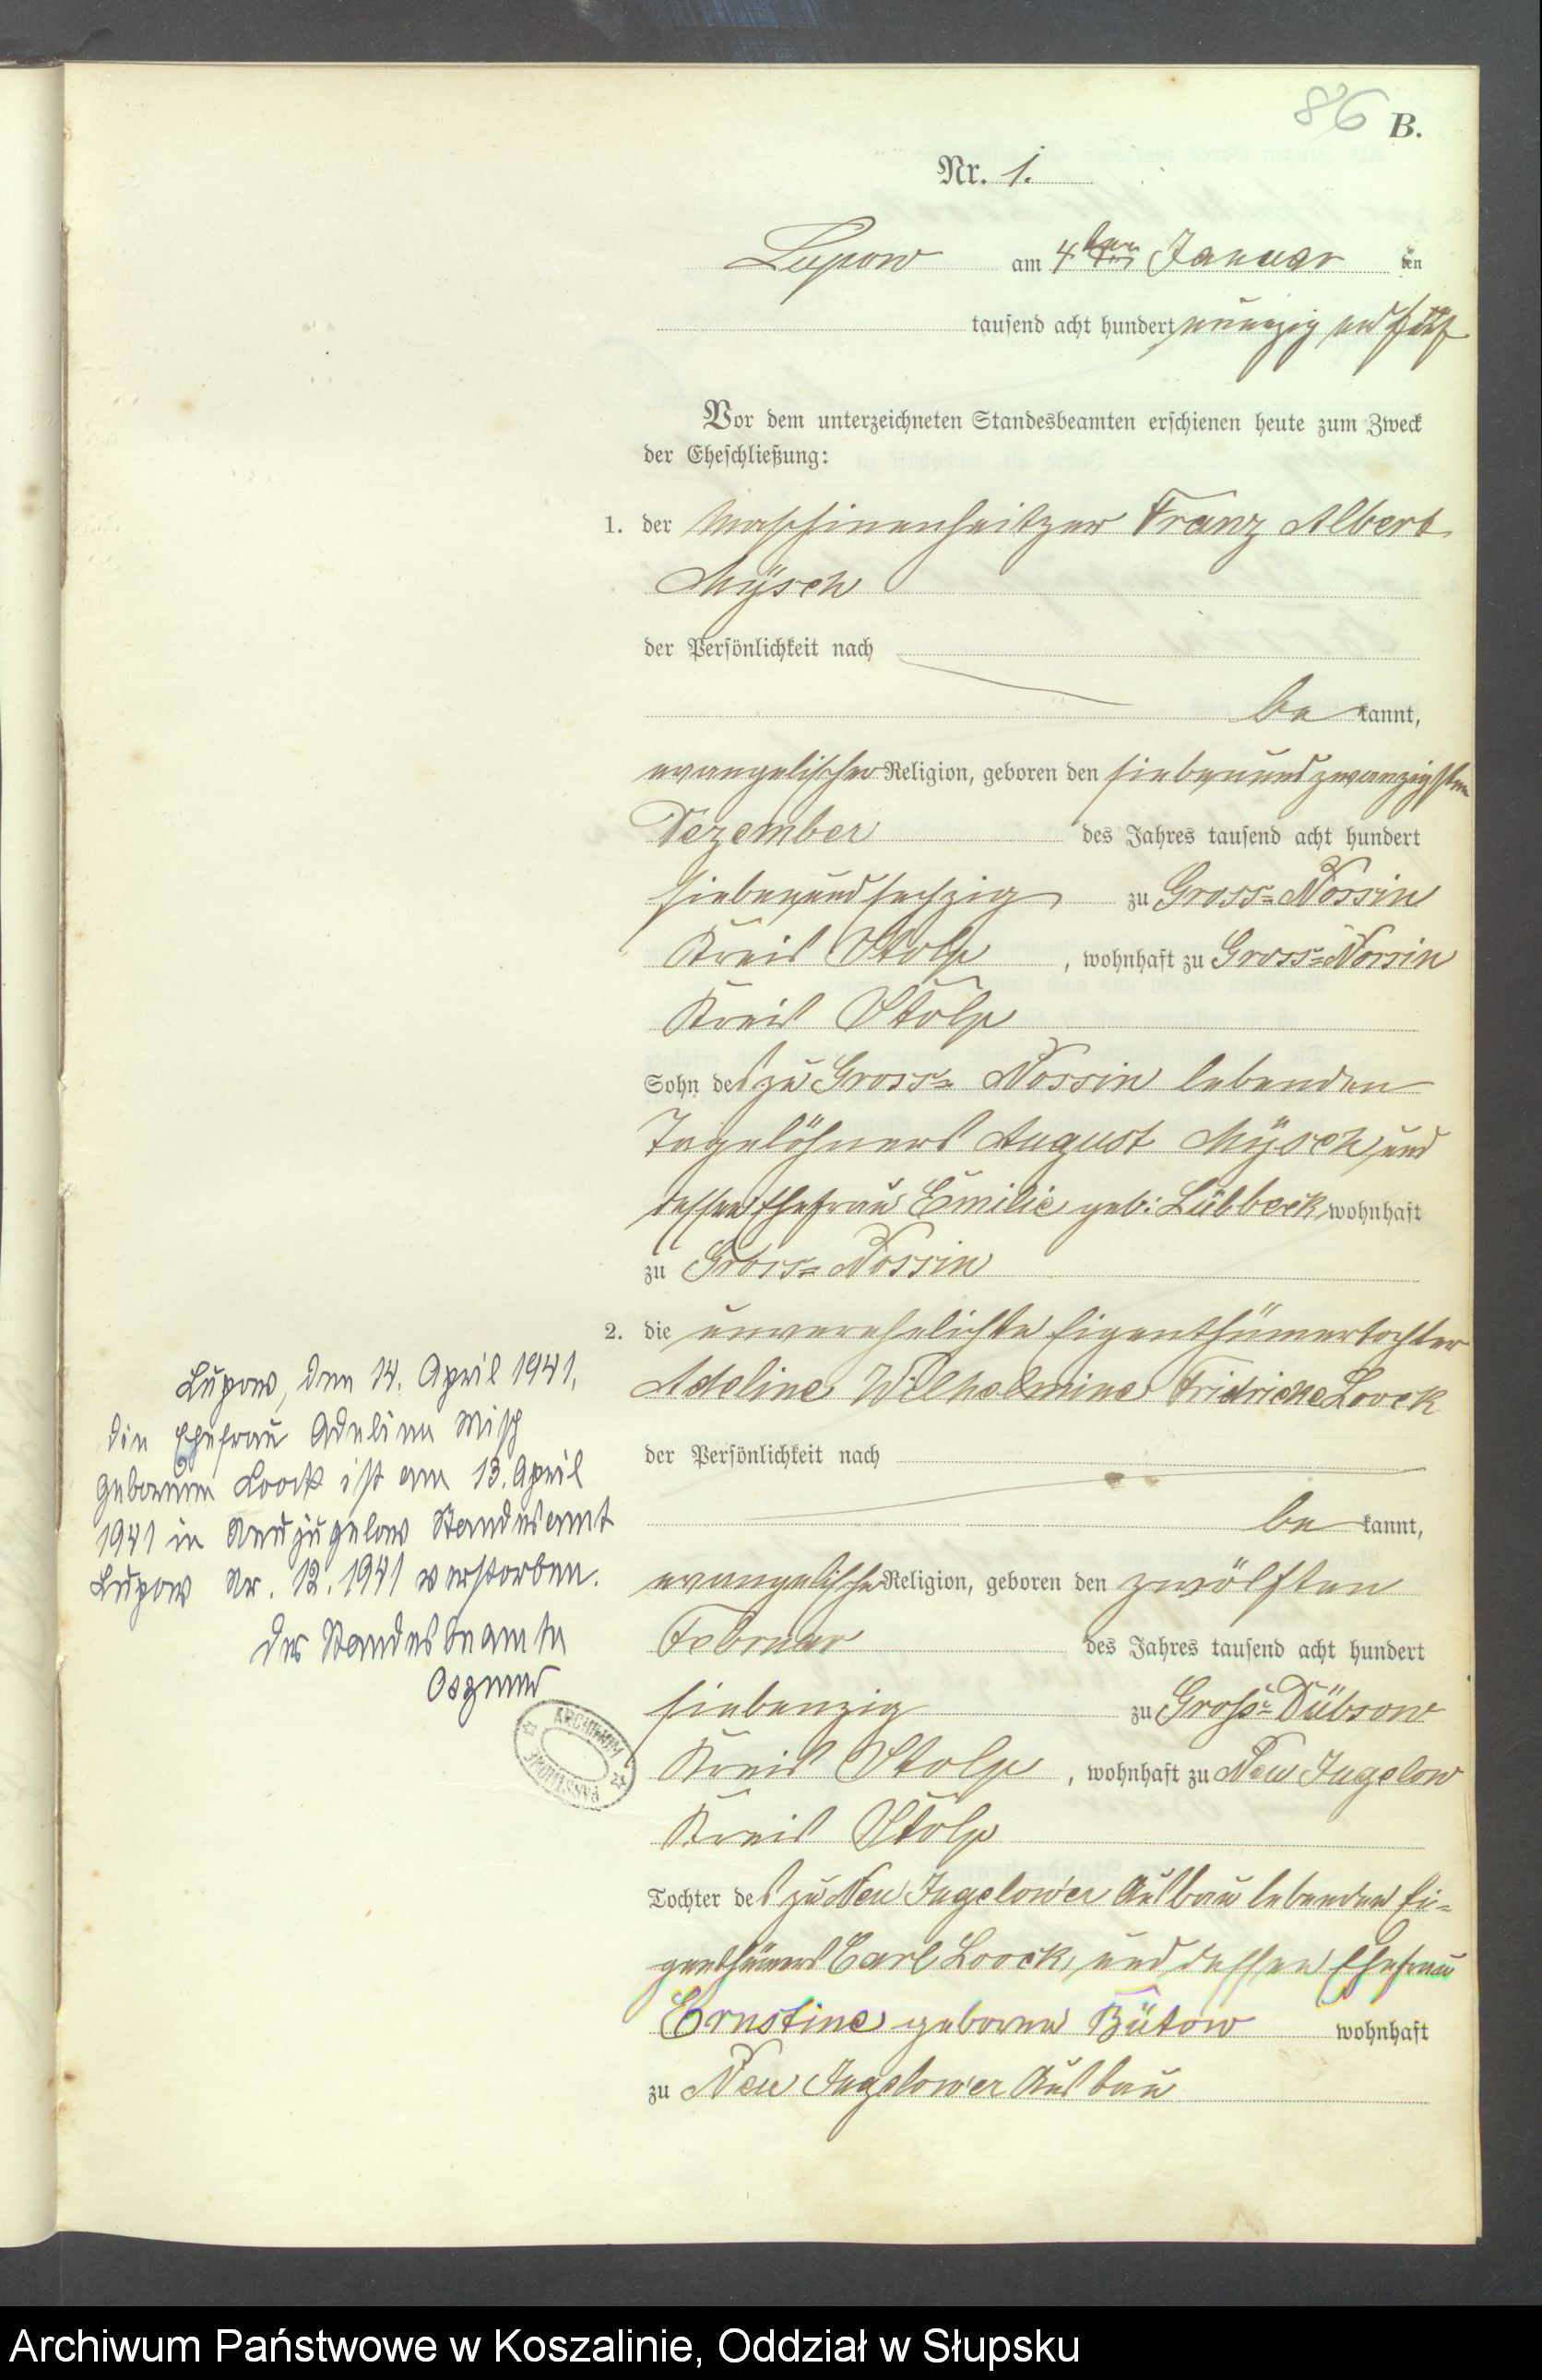 86 B.
Nr. 1.
Lupow am 4ten Januar ten
tausend acht hundert neunzig und fünf
Vor dem unterzeichneten Standesbeamten erschienen heute zum Zweck
der Eheschließung:
1. der Maschinenheitzer Franz Albert
Mÿsch
der Persönlichkeit nach
be kannt,
evangelischer Religion, geboren den siebenundzwanzigsten
Dezember des Jahres tausend acht hundert
siebenundsechzig zu Gross=Nossin
Kreis Stolp, wohnhaft zu Gross=Nossin
Kreis Stolp
Sohn des zu Gross=Nossin lebenden
Tagelöhners August Mÿsch und
dessen Ehefrau Emilie geb: Lübbeck wohnhaft
zu Gross=Nossin
2. die unverehelichte Eigenthümertochter
Adeline Wilhelmine Fridricke Loock
der Persönlichkeit nach
be kannt,
evangelischer Religion, geboren den zwölften
Februar des Jahres tausend acht hundert
siebenzig zu Groß=Dübsow
Kreis Stolp, wohnhaft zu Neu Jugelow
Kreis Stolp
Tochter des zu Neu Jugelow'er Ausbau lebenden Ei=
genthümers Carl Loock und dessen Ehefrau
Ernstine geborne Bütow wohnhaft
zu Neu Jugelow'er Ausbau
Lupow, den 14. April 1941.
Die Ehefrau Adeline Misch
geborene Loock ist am 13. April
1941 in Neujugelow Standesamt
Lupow Nr. 12.1941 verstorben.
Der Standesbeamte
ARCHIWUM
PAŃSTWOWE
Archiwum Państwowe w Koszalinie, Oddział w Słupsku